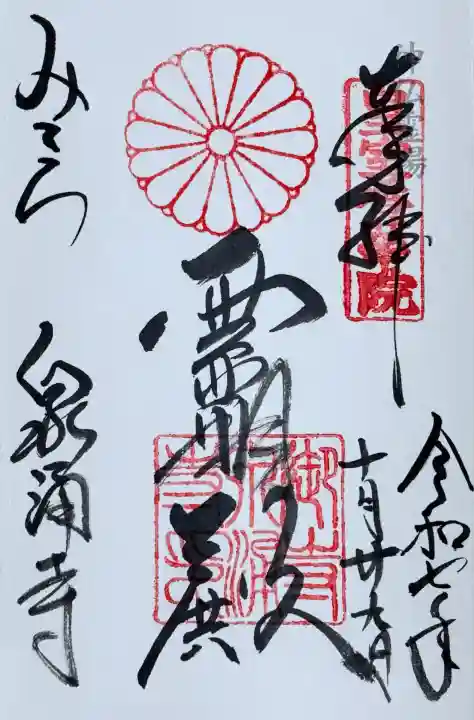 奉拝
令和七年
十月廿九日
霊明殿
みてら
泉涌寺